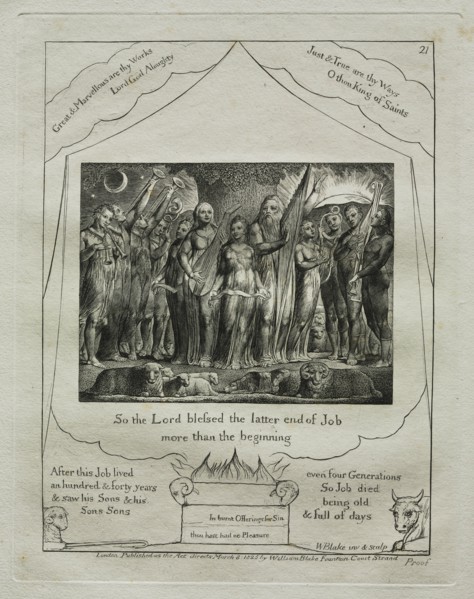 21
Great & Marvellous are thy Works
Lord God Almighty
Just & True are thy Ways
O thou King of Saints
So the Lord blessed the latter end of Job
more than the beginning
After this Job lived
an hundred & forty years
& saw his Sons & his
Sons Sons
even four Generations
So Job died
being old
& full of days
In burnt Offerings for Sin
thou hast had no Pleasure
W Blake inv & sculp
London. Published as the Act directs, March 8. 1825 by William Blake Fountain Court Strand
Proof